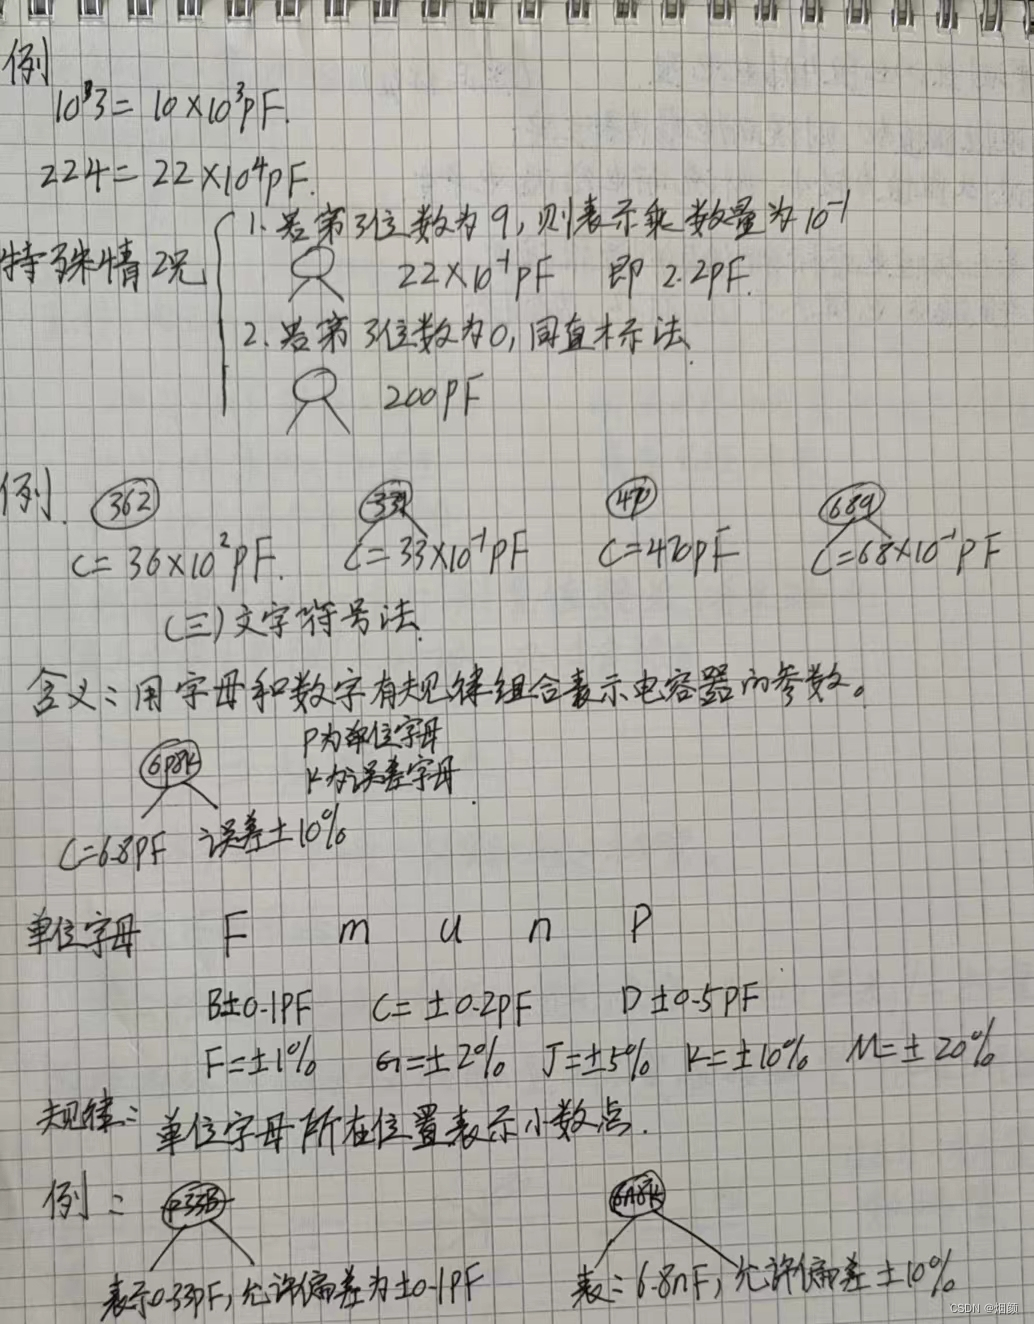 例
103=10×10³pF.
224=22×10⁴pF.
特殊情况
1. 若第3位数为9,则表示乘数量为10⁻¹
22×10⁻¹pF 即 2.2pF.
2. 若第3位数为0,同直标示法.
200pF
例. 362 339 470 689
C=36×10²pF. C=33×10⁻¹pF C=470pF C=68×10⁻¹pF
(三)文字符号法.
含义:用字母和数字有规律组合表示电容器的参数。
6P8K P为单位字母
K为误差字母.
C=6.8PF 误差±10%
单位字母 F m u n P
B±0.1PF C=±0.2PF D±0.5PF
F=±1% G=±2% J=±5% K=±10% M=±20%
规律:单位字母所在位置表示小数点.
例: P33B 6n8K
表示0.33pF,允许偏差为±0.1PF 表:6.8nF,允许偏差±10%
CSDN @烟颜